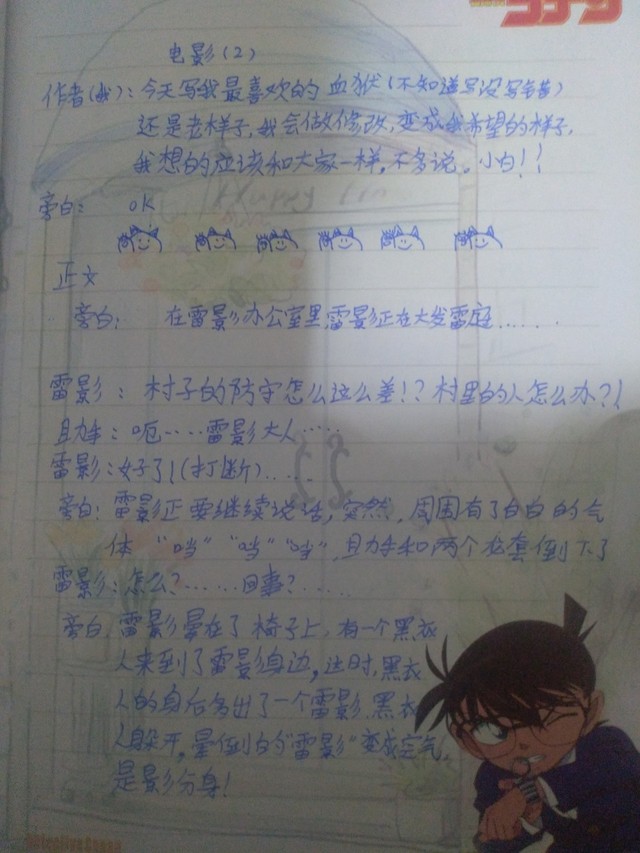 电影(2)
作者(我):今天写我最喜欢的血狱(不知道写没写错)
还是老样子,我会做修改,变成我希望的样子,
我想的应该和大家一样,不多说。小白!!
旁白: OK
正文
旁白: 在雷影办公室里,雷影正在大发雷庭……
雷影:村子的防守怎么这么差!?村里的人怎么办?!
助手:呃……雷影大人……
雷影:好了!(打断)……
旁白:雷影正要继续说话,突然,周围有了白白的气
体“当”“当”“当”,助手和两个龙套倒下了
雷影:怎么?……回事?……
旁白:雷影晕在了椅子上,有一个黑衣
人来到了雷影身边,这时,黑衣
人的身后多出了一个雷影,黑衣
人躲开,晕倒的“雷影”变成空气,
是影分身!